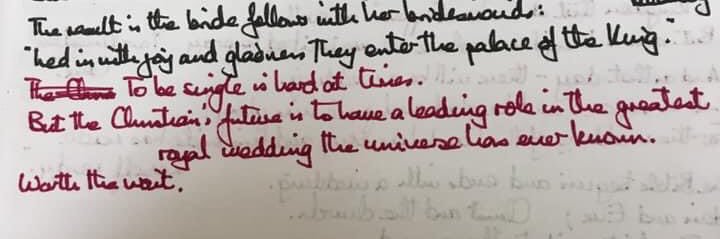 The result is the bride follows with her bridesmaids:
"Led in with joy and gladness They enter the palace of the King."
To be single is hard at times.
But the Christian's future is to have a leading role in the greatest
royal wedding the universe has ever known.
Worth the wait.